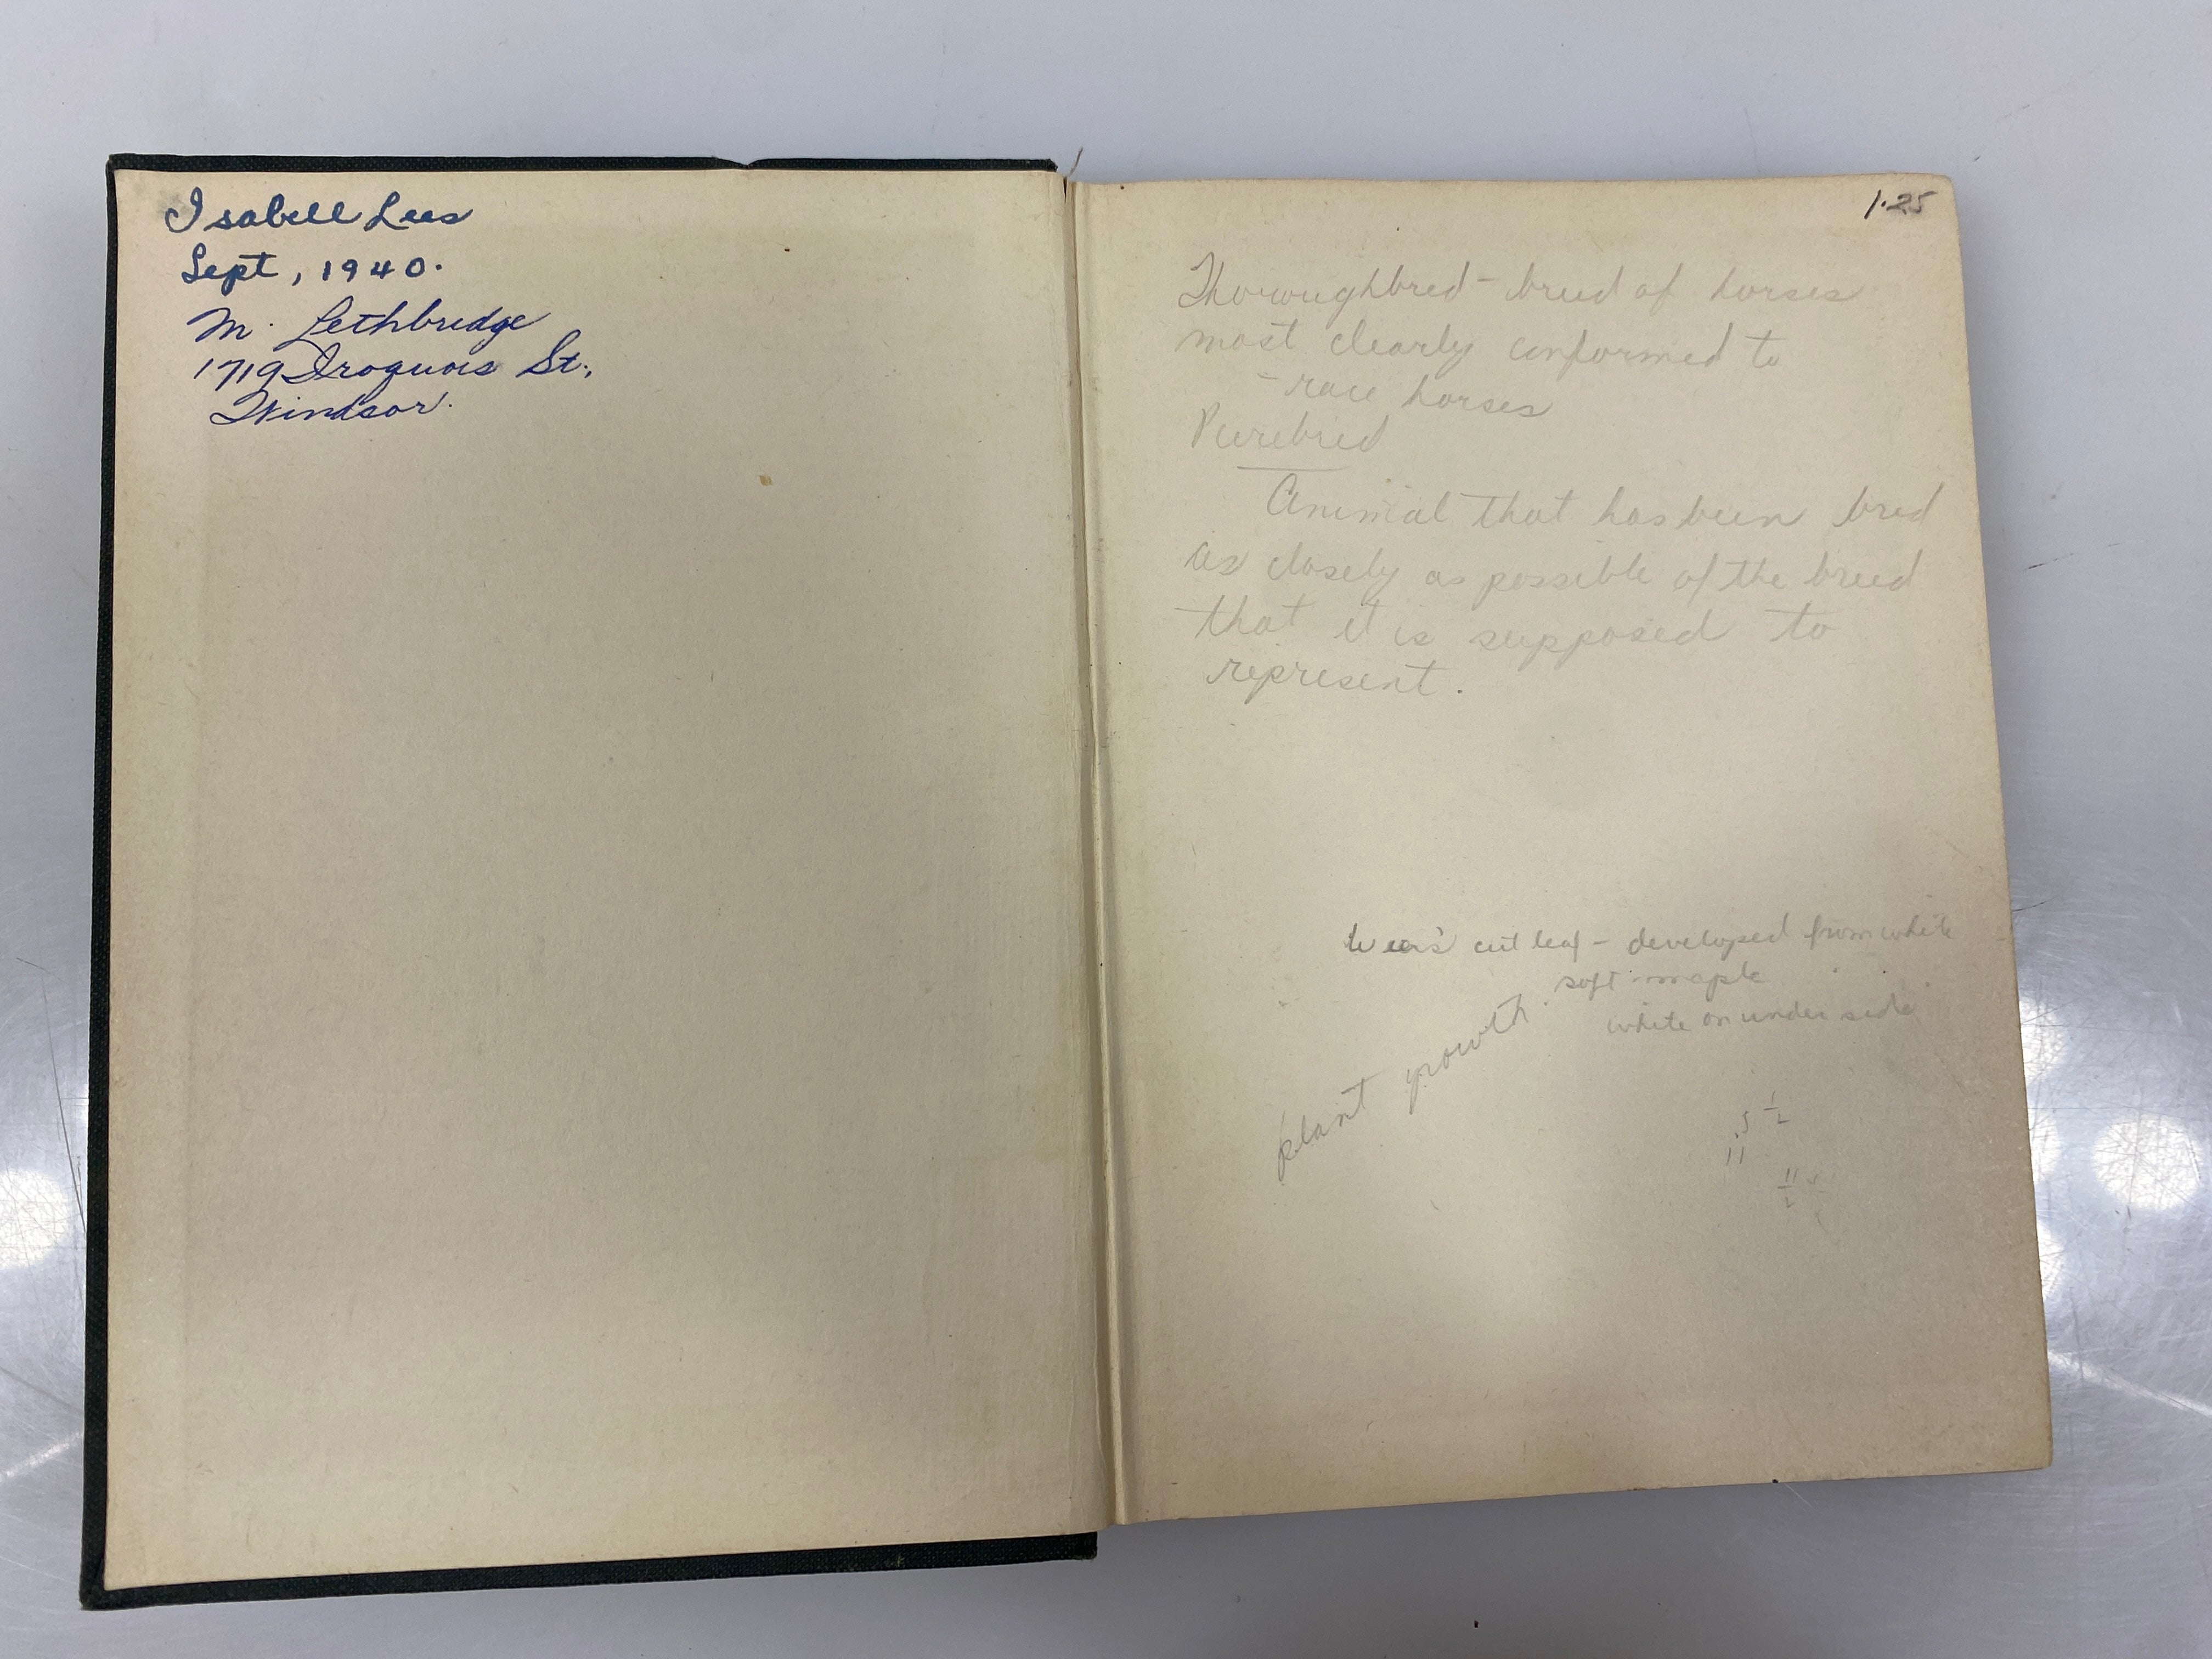 Isabell Lees
Sept, 1940.
M. Lethbridge
1719 Iroquois St.,
Windsor.
1.25
Thoroughbred - breed of horses
most clearly conformed to
- race horses
Purebred
Animal that has been bred
as closely as possible of the breed
that it is supposed to
represent.
cut leaf - developed from white
soft maple
white on under side
plant growth
1/2
11
11/2